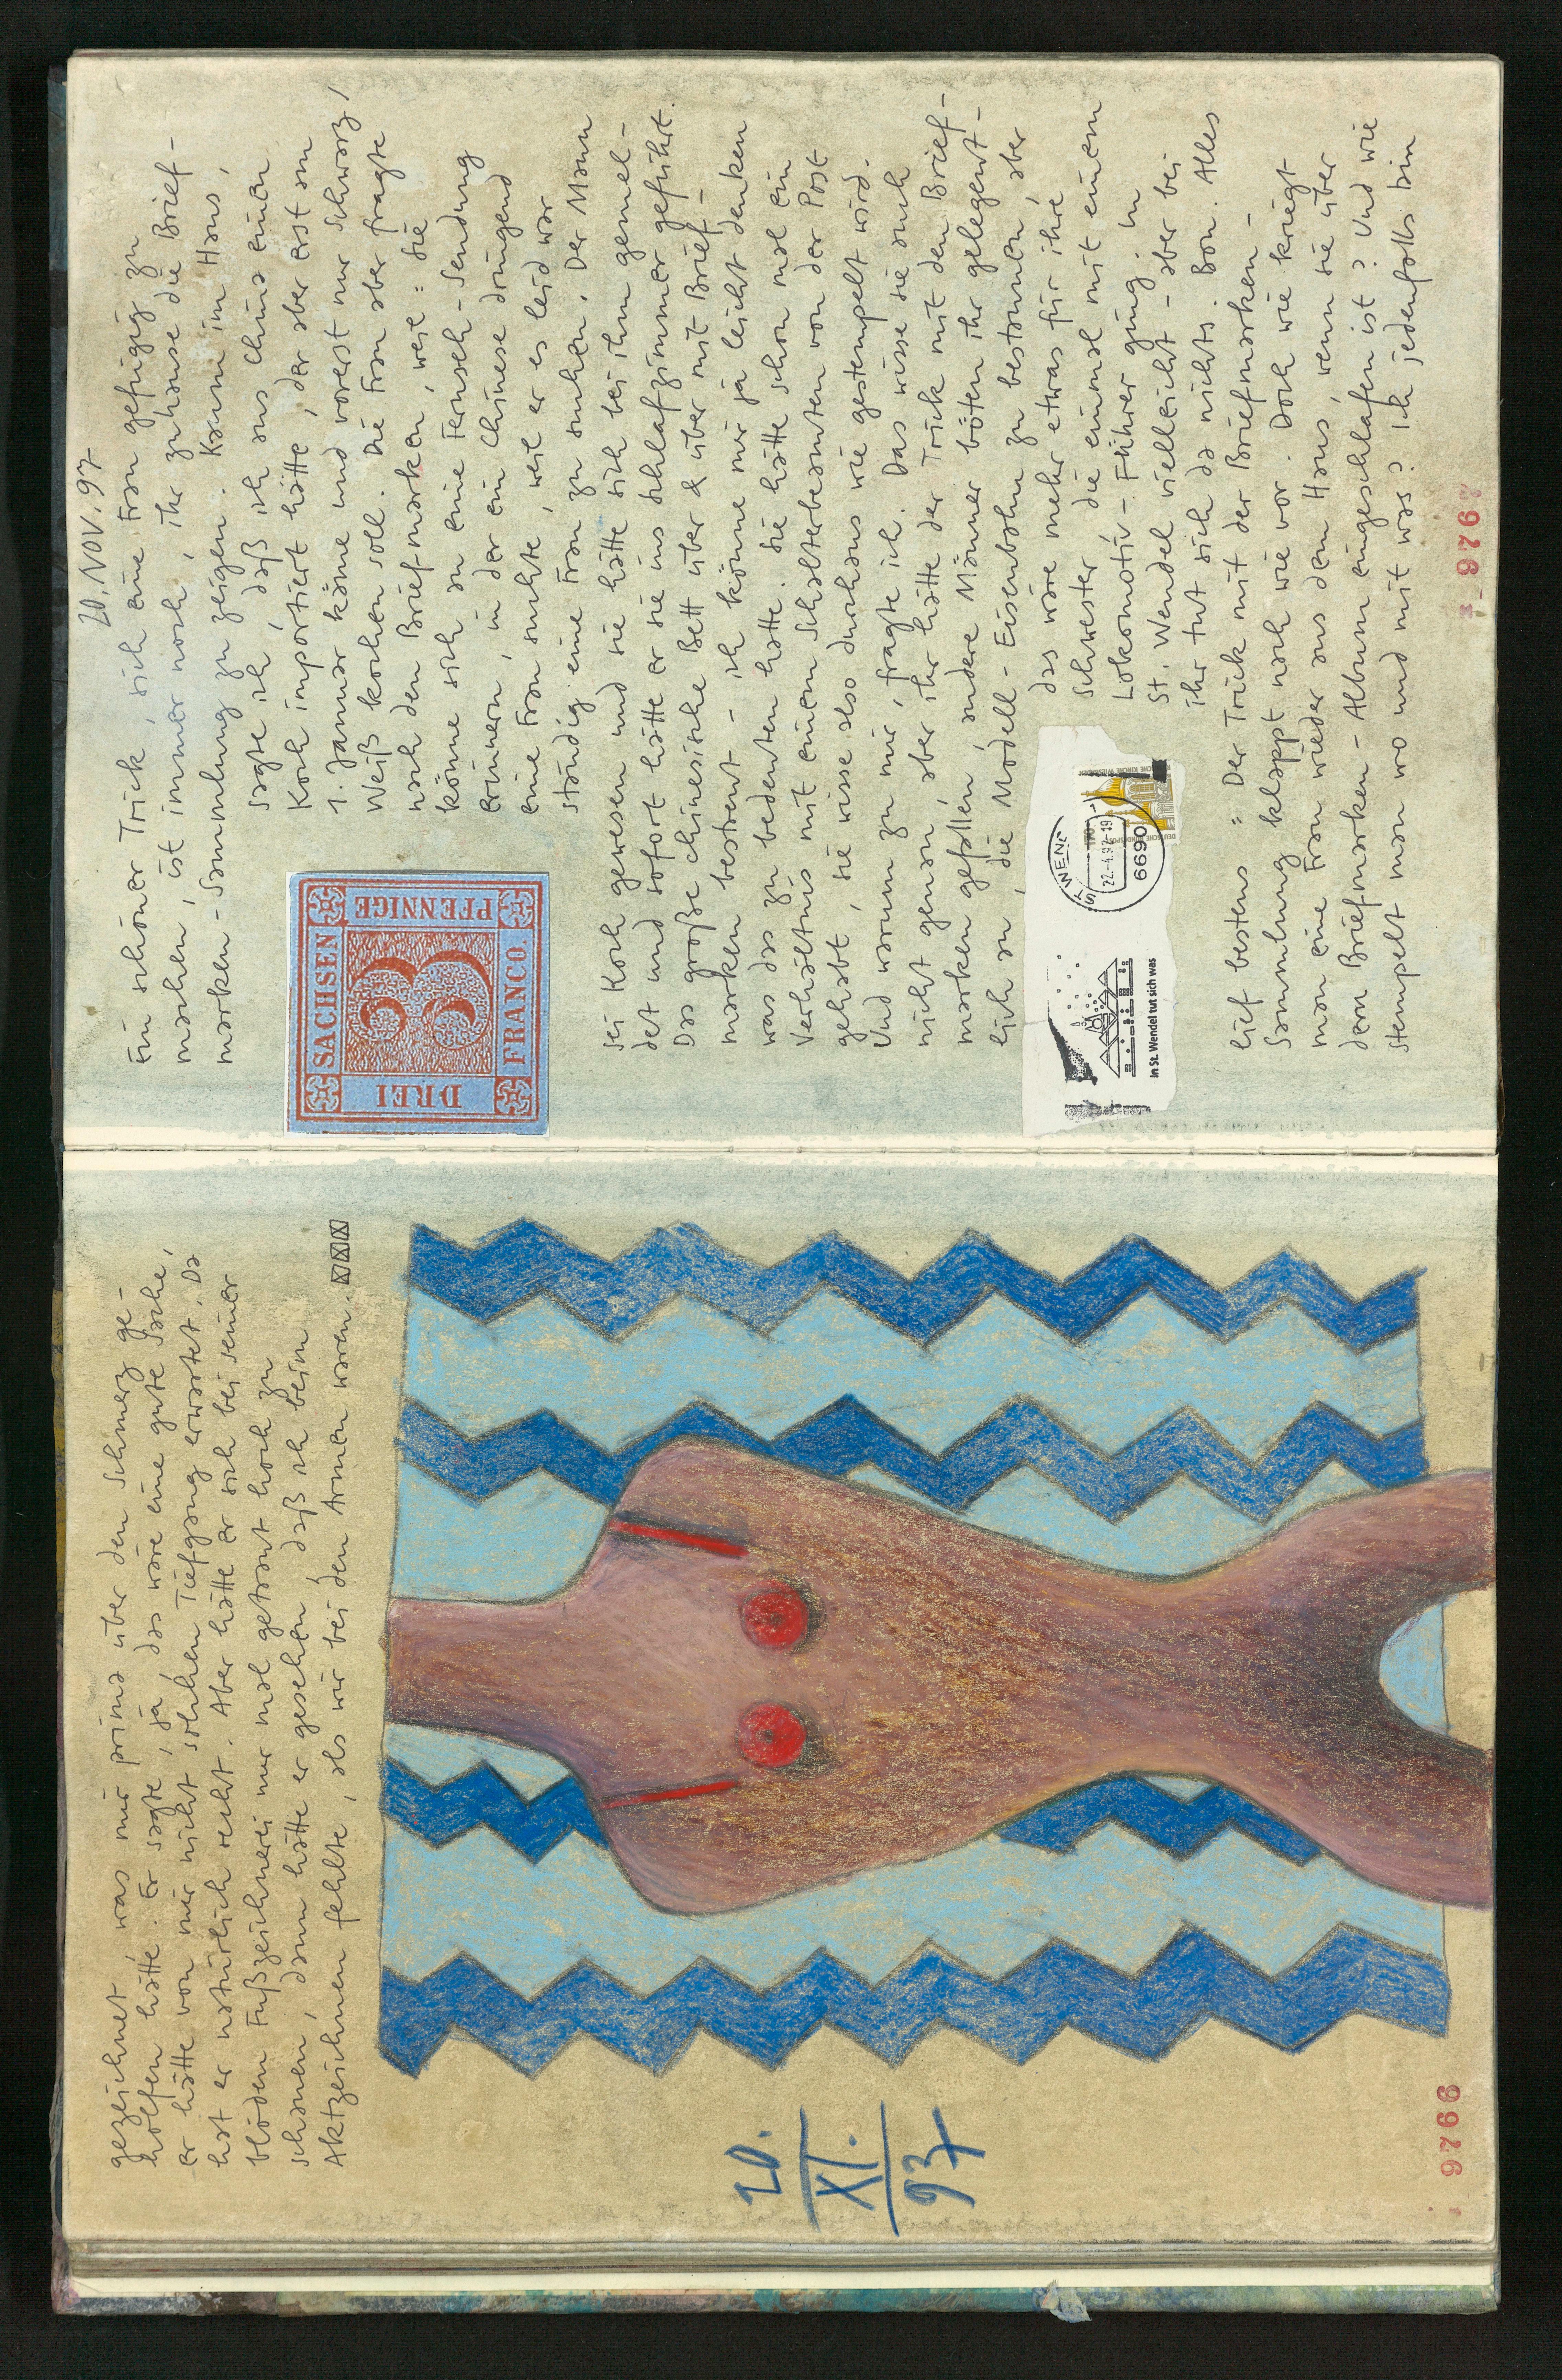 gezeichnet, was mir prima über den Schmerz ge-
holfen hätte. Er sagte, ja, das wäre eine gute Sache,
er hätte von mir nicht solchen Tiefgang erwartet. Da
hat er natürlich recht. Aber hätte er sich bei seiner
blöden Fußzeichnerei nur mal getraut hoch zu
schauen, dann hätte er gesehen, daß ich beim
Aktzeichnen fehlte, als wir bei den Armen waren.
20.
XI.
97
9766
20. NOV. 97
Ein schöner Trick, sich eine Frau gefügig zu
machen, ist immer noch, ihr zuhause die Brief-
marken-Sammlung zu zeigen. Kaum im Haus,
sagte ich, daß ich aus China einen
Koch importiert hätte, der aber erst am
1. Januar käme und vorerst nur Schwarz/
Weiß kochen soll. Die Frau aber fragte
nach den Briefmarken, weil: sie
könne sich an eine Fernseh-Sendung
erinnern, in der ein Chinese dringend
eine Frau suchte, weil er es leid war
ständig eine Frau zu suchen. Der Mann
SACHSEN
DREI
PFENNIGE
FRANCO.
3
sei Koch gewesen und sie hätte sich bei ihm gemel-
det und sofort hätte er sie ins Schlafzimmer geführt.
Das große chinesische Bett über & über mit Brief-
marken bestreut - ich könne mir ja leicht denken
was das zu bedeuten hatte. Sie hätte schon mal ein
Verhältnis mit einem Schalterbeamten von der Post
gehabt, sie wisse also durchaus wie gestempelt wird.
Und warum zu mir, fragte ich. Das wisse sie auch
nicht genau, aber ihr hätte der Trick mit den Brief-
marken gefallen, andere Männer böten ihr gelegent-
lich an, die Modell-Eisenbahn zu bestaunen, aber
das wäre mehr etwas für ihre
Schwester, die einmal mit einem
Lokomotiv-Führer ging. In
St. Wendel vielleicht - aber bei
ihr tut sich da nichts. Bon. Alles
In St. Wendel tut sich was
ST. WEND
22.-4.97-19
6690
lief bestens: Der Trick mit der Briefmarken-
Sammlung klappt nach wie vor. Doch wie kriegt
man eine Frau wieder aus dem Haus, wenn sie über
dem Briefmarken-Album eingeschlafen ist? Und wie
stempelt man wo und mit was? Ich jedenfalls bin